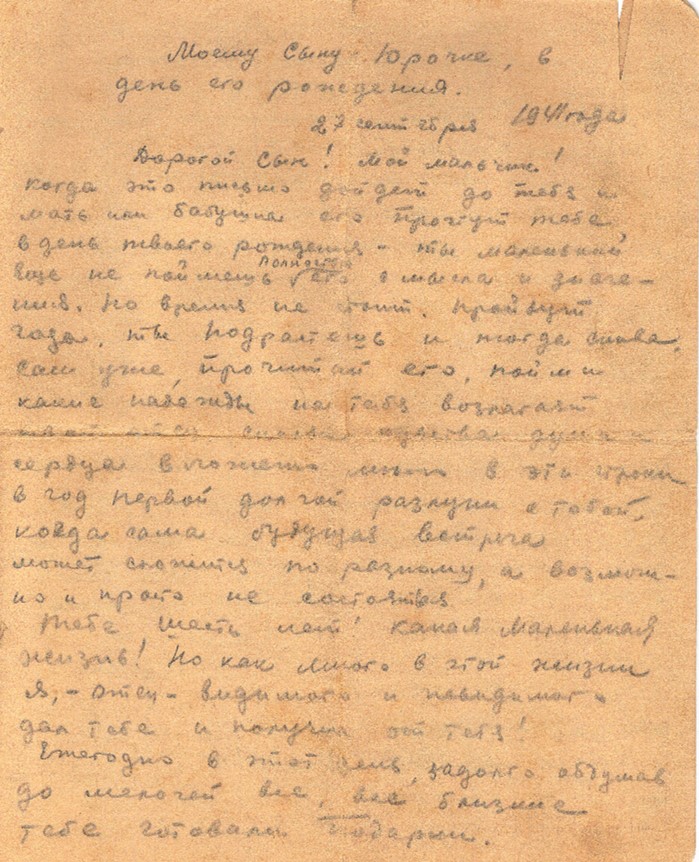 Моему сыну Юрочке, в
день его рождения.
27 сентября 1941 года
Дорогой сын! Мой мальчик!
когда это письмо дойдет до тебя и
мать или бабушка его прочтут тебе,
в день твоего рождения - ты маленький
еще не поймешь полностью его смысла и значе-
ния. Но время не стоит. Пройдут
года, ты подрастешь и тогда снова,
сам уже, прочитай его, пойми
какие надежды на тебя возлагает
твой отец, чувства души и
сердца вложены в эти строки
в год первой долгой разлуки с тобой,
когда сама будущая встреча
может сложится по разному, а возмож-
но и просто не состоятся
Тебе шесть лет! какая маленькая
жизнь! Но как много в этой жизни
я, - отец - видимого и невидимого
дал тебе и получил от тебя!
Ежегодно в этот день, задолго обдумав
до мелочей все, все близкие
тебе готовили подарки.